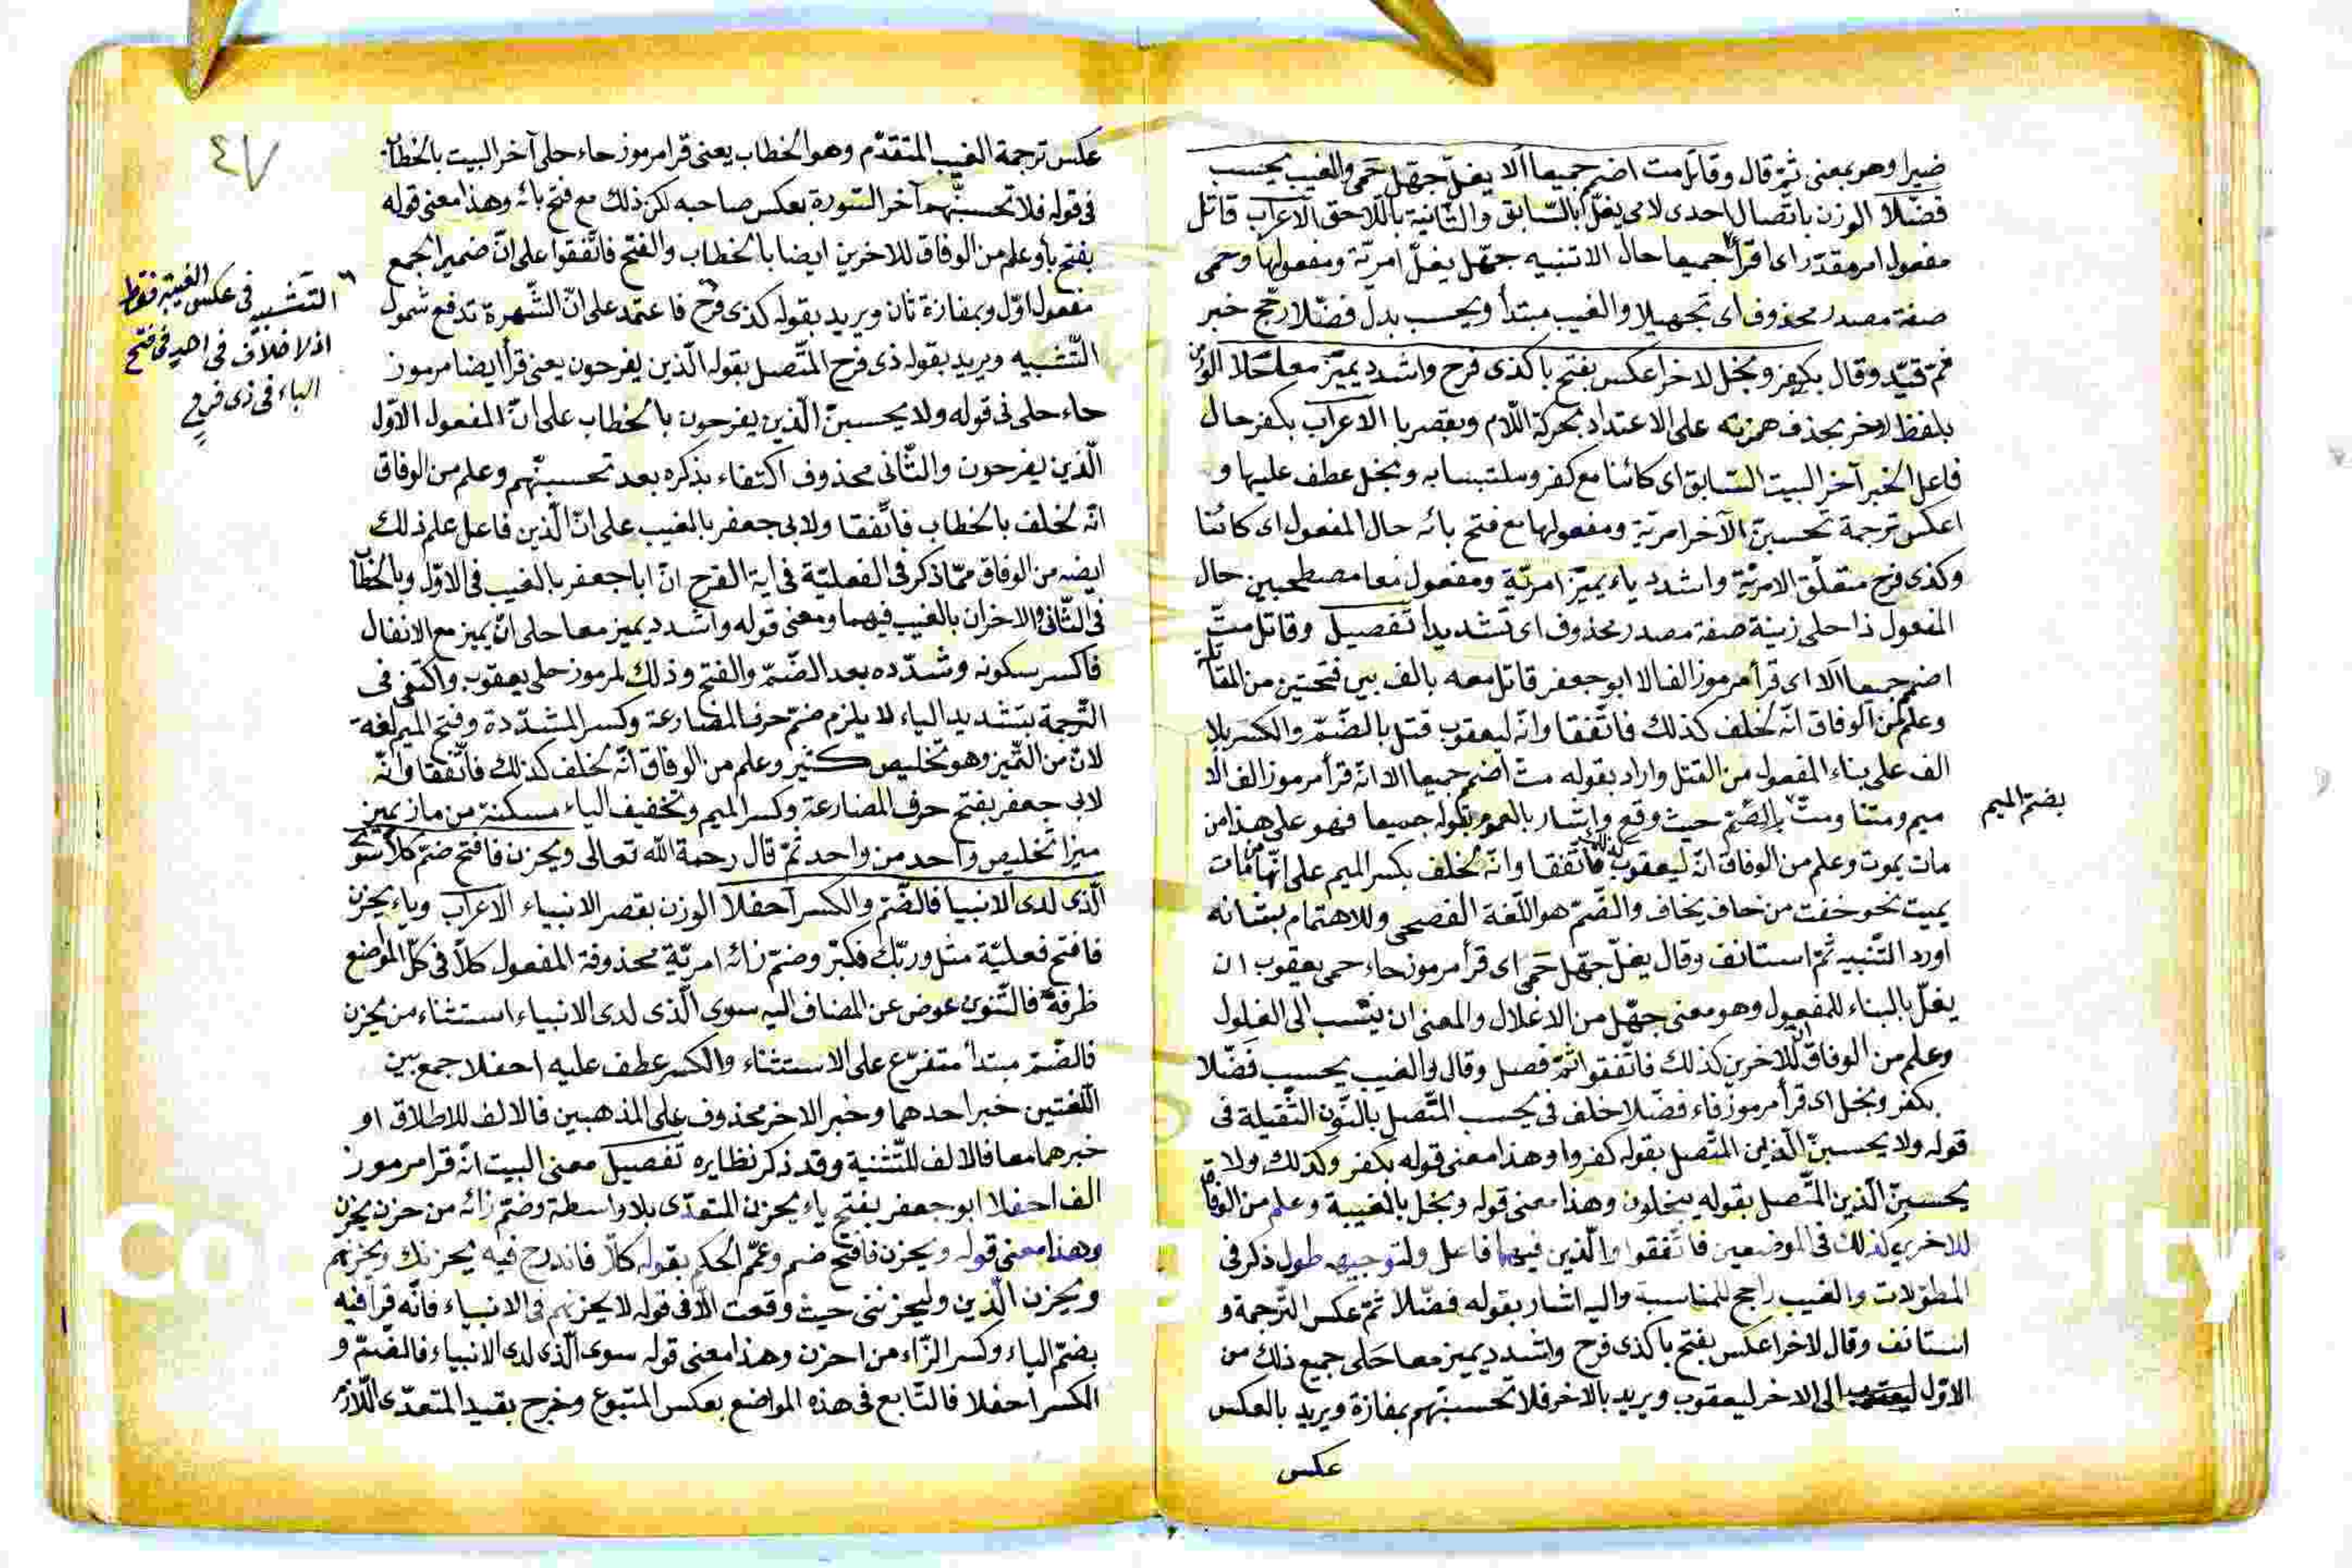 ضيرا وهو بمعنى ثمّ قال وقاتل مت اضمم جميعا ألا يغلّ جهّل حمى والغيب يحسب
فضّلا الوزن باتصال احدى لامى يغلّ بالسّابق والثّانية باللّاحق الاعراب قاتل
مفعول امر مقدّر اى اقرأ جميعا حال الا تنبيه جهّل يغلّ امريّة ومفعولها وحمى
صفة مصدر محذوف اى تجهيلا والغيب مبتدأ ويحسب بدل فضّلا رجّح خبر
ثمّ قيّد وقال بكفر وبخل لاخر اعكس بفتح با كذى فرح واشدد يميّز معا حلا الوزن
بلفظ لاخر بحذف همزته على الاعتداد بحركة اللّام وبقصر با الاعراب بكفر حال
فاعل الخبر آخر البيت السّابق اى كائنا مع كفر وملتبسا به وبخل عطف عليها و
اعكس ترجمة تحسبنّ الآخر امريّة ومفعولها مع فتح بائه حال المفعول اى كائنا
وكذى فرح متعلّق الامريّة واشدد ياء يميّز امريّة ومفعول معا مصطحبين حال
المفعول ذا حلى زينة صفة مصدر محذوف اى تشديدا تفصيل وقاتل متّ
اضمم جميعا ألا اى قرأ مرموز الف الا ابو جعفر قاتل معه بالف بين فتحتين من المقاتلة
وعلم من الوفاق انّه لخلف كذلك فاتّفقا وانّه ليعقوب قتل بالضّمّ والكسر بلا
الف على بناء المفعول من القتل واراد بقوله مت اضمم جميعا الا انه قرأ مرموز الف الا
ميم ومتنا ومتّ بالضّمّ حيث وقع واشار بالعموم بقوله جميعا فهو على هذا من
بضمّ الميم
مات يموت وعلم من الوفاق انّه ليعقوب كذلك فاتّفقا وانّه لخلف بكسر الميم على انّها من مات
يميت نحو خفت من خاف يخاف والضّمّ هو اللّغة الفصحى وللاهتمام بشانه
اورد التّنبيه ثمّ استانف وقال يغلّ جهّل حمى اى قرأ مرموز حاء حمى يعقوب ان
يغلّ بالبناء للمفعول وهو معنى جهّل من الاغلال والمعنى ان ينسب الى الغلول
وعلم من الوفاق انّ للاخرين كذلك فاتّفقوا ثمّ فصل وقال والغيب يحسب فضّلا
بكفر وبخل اى قرأ مرموز فاء فضّلا خلف فى يحسب المتّصل بالنّون الثّقيلة فى
قوله ولا يحسبنّ الّذين المتّصل بقوله كفروا وهذا معنى قوله بكفر وكذلك ولا
يحسبنّ الّذين المتّصل بقوله يبخلون وهذا معنى قوله وبخل بالغيبة وعلم من الوفاق
للاخرين كذلك فى الموضعين فاتّفقوا والّذين فيهما فاعل ولتوجيهه طول ذكر فى
المطوّلات والغيب راجح للمناسبة واليه اشار بقوله فضّلا ثمّ عكس التّرجمة و
استانف وقال لاخر اعكس بفتح با كذى فرح واشدد يميز معا حلى جميع ذلك من
الاوّل الى الاخر ليعقوب ويريد بالاخر فلا تحسبنّهم بمفازة ويريد بالعكس
عكس
٤٧
عكس ترجمة الغيب المتقدّم وهو الخطاب يعنى قرا مرموز حاء حلى آخر البيت بالخطاب
فى قوله فلا تحسبنّهم آخر السّورة بعكس صاحبه لكن ذلك مع فتح بائه وهذا معنى قوله
بفتح با وعلم من الوفاق للاخرين ايضا بالخطاب والفتح فاتّفقوا على انّ ضمير الجمع
مفعول اوّل وبمفازة ثان ويريد بقوله كذى فرح فاعتمد على انّ الشّهرة تدفع شمول
التّشبيه ويريد بقوله ذى فرح المتّصل بقوله الّذين يفرحون يعنى قرأ ايضا مرموز
حاء حلى فى قوله ولا يحسبنّ الّذين يفرحون بالخطاب على انّ المفعول الاوّل
الّذين يفرحون والثّانى محذوف اكتفاء بذكره بعد تحسبنّهم وعلم من الوفاق
انّه لخلف بالخطاب فاتّفقا ولابى جعفر بالغيب على انّ الّذين فاعل علم ذلك
ايضه من الوفاق ممّا ذكر فى الفعليّة فى اية الفرح انّ ابا جعفر بالغيب فى الاوّل وبالخطاب
فى الثّانى والاخران بالغيب فيهما ومعنى قوله واشدد يميز معا حلى انّ يميز مع الانفال
فاكسر سكونه وشدّده بعد الضّمّ والفتح وذلك لمرموز حلى يعقوب واكتفى فى
التّرجمة بتشديد الياء لا يلزم ضمّ حرف المضارعة وكسر المشدّدة وفتح الميم لغة
لانّ من التّميز وهو تخليص كثير وعلم من الوفاق انّه لخلف كذلك فاتّفقا وانّه
لابى جعفر بفتح حرف المضارعة وكسر الميم وتخفيف الياء مسكنة من ماز يميز
ميزا تخليص واحد من واحد ثمّ قال رحمة الله تعالى ويحزن فافتح ضمّ كلّا سوى
الّذى لدى الانبيا فالضّمّ والكسر احفلا الوزن بقصر الانبياء الاعراب وياء يحزن
فافتح فعليّة مثل وربّك فكبّر وضمّ زائه امريّة محذوفة المفعول كلّا فى كلّ المواضع
ظرفه فالتّنوين عوض عن المضاف اليه سوى الّذى لدى الانبياء استثناء من يحزن
فالضّمّ مبتدأ متفرّع على الاستثناء والكسر عطف عليه احفلا جمع بين
اللّغتين خبر احدهما وخبر الاخر محذوف على المذهبين فالالف للاطلاق او
خبرهما معا فالالف للتّثنية وقد ذكر نظايره تفصيل معنى البيت انّه قرا مرموز
الف احفلا ابو جعفر بفتح ياء يحزن المتعدّى بلا واسطة وضمّ زائه من حزن يحزن
وهذا معنى قوله ويحزن فافتح ضم وعمّم الحكم بقوله كلّا فاندرج فيه يحزنك ويحزنهم
ويحزن الّذين وليحزننى حيث وقعت الّا فى قوله لا يحزنهم فى الانبياء فانّه قرأ فيه
بضمّ الياء وكسر الزّاء من احزن وهذا معنى قوله سوى الّذى لدى الانبياء فالضّمّ و
الكسر احفلا فالتّابع فى هذه المواضع بعكس المتبوع وخرج بقيد المتعدّى اللّازم
التشبيه فى عكس الغيبة فقط
اذ لا خلاف فى احد فى فتح
الباء فى ذى فرح